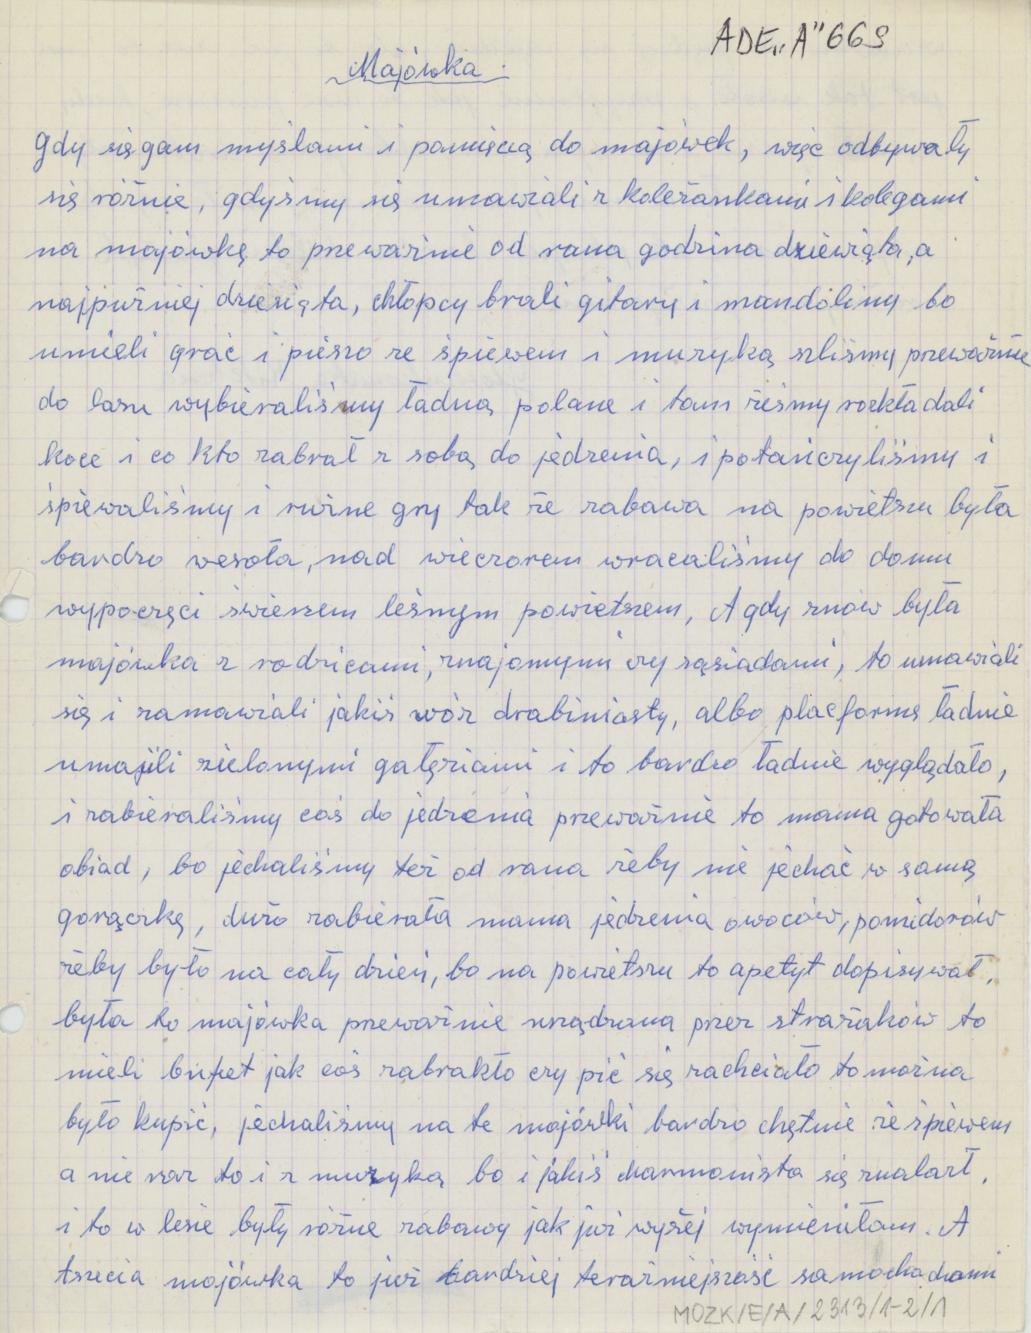 ADE„A”669
Majówka.
Gdy sięgam myślami i pamięcią do majówek, więc odbywały
się różnie, gdyśmy się umawiali z koleżankami i kolegami
na majówkę to przeważnie od rana godzina dziewiąta, a
najpuźniej dziesiąta, chłopcy brali gitary i mandoliny bo
umieli grać i pieszo ze śpiewem i muzyką szliśmy przeważnie
do lasu wybieraliśmy ładną polane i tam żeśmy rozkładali
koce i co kto zabrał z sobą do jedzenia, i potańczyliśmy i
śpiewaliśmy i różne gry tak że zabawa na powietszu była
bardzo wesoła, nad wieczorem wracaliśmy do domu
wypoczęci świeszem leśnym powietszem, A gdy znów była
majówka z rodzicami, znajomymi czy sąsiadami, to umawiali
się i zamawiali jakiś wóz drabiniasty, albo placformę ładnie
umajili zielonymi gałęziami i to bardzo ładnie wyglądało,
i zabieraliśmy coś do jedzenia przeważnie to mama gotowała
obiad, bo jechaliśmy też od rana żeby nie jechać w samą
gorączkę, dużo zabierała mama jedzenia owoców, pomidorów
żeby było na cały dzień, bo na powietszu to apetyt dopisywał,
była to majówka przeważnie urządzana przez strażaków to
mieli bufet jak coś zabrakło czy pić się zachciało to można
było kupić, jechaliśmy na te majówki bardzo chętnie ze śpiewem
a nie raz to i z muzyką bo i jakiś charmonista się znalazł,
i to w lesie były różne zabawy jak już wyżej wymieniłam. A
trzecia majówka to już bardziej teraźniejszość samochodami
MOZK/E/A/2313/1-2/1